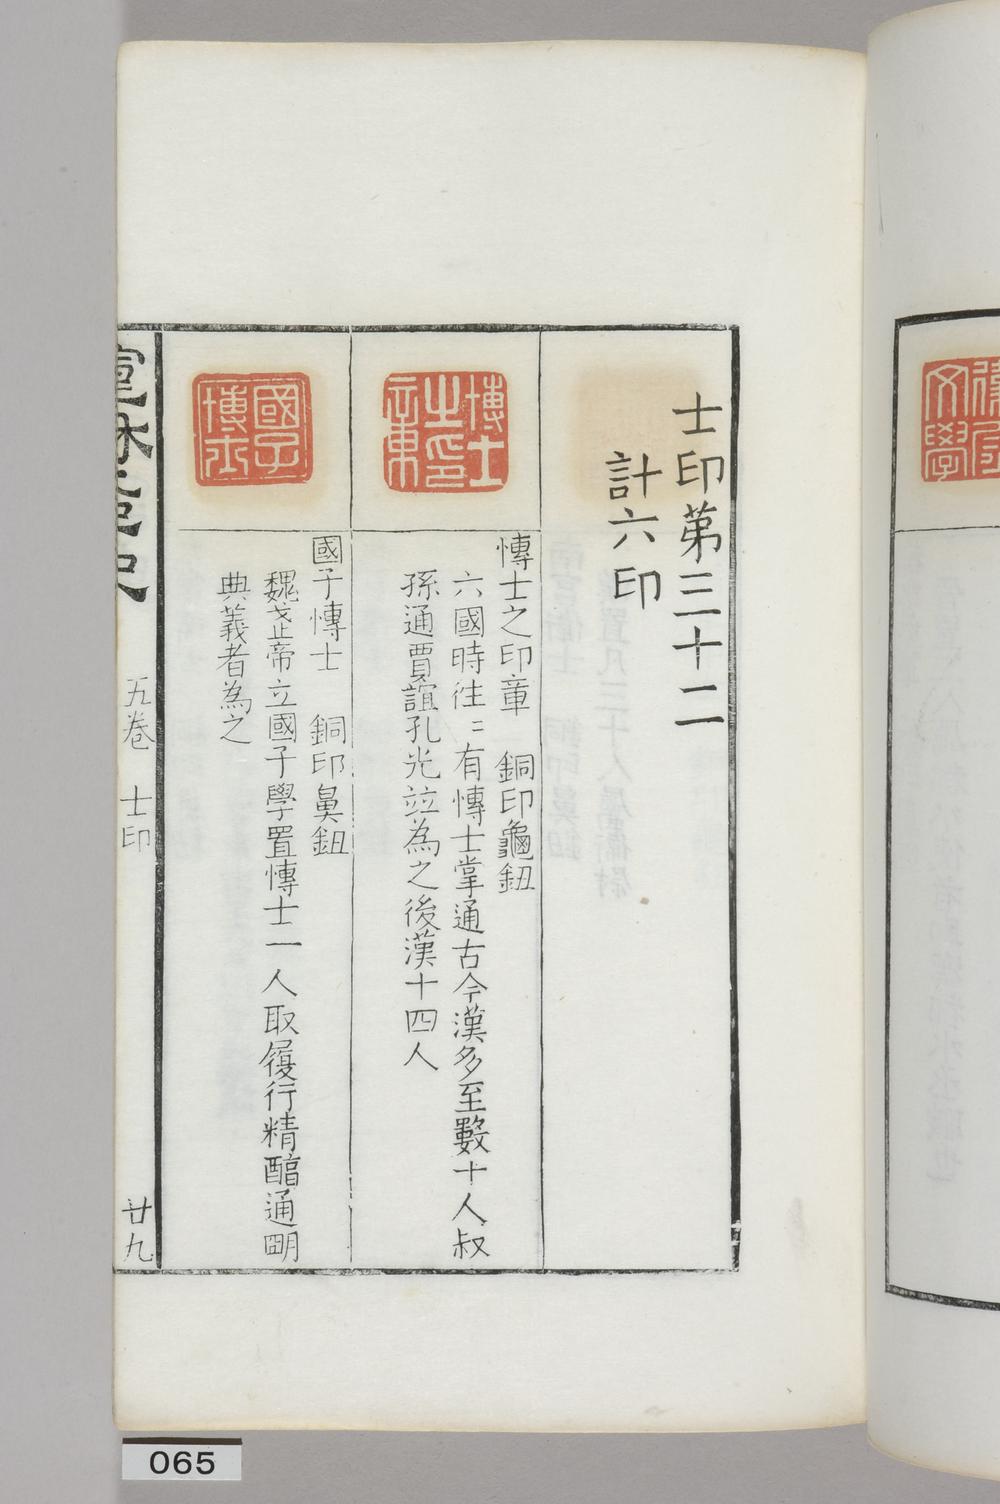 士印第三十二
計六印
博士之印章
博士之印章　銅印龜鈕
六國時往〻有博士掌通古今漢多至數十人叔
孫通賈誼孔光竝為之後漢十四人
國子博士
國子博士　銅印鼻鈕
魏武帝立國子學置博士一人取履行精醇通明
典義者為之
宣和集古印史
五卷　士印
廿九
文學
065